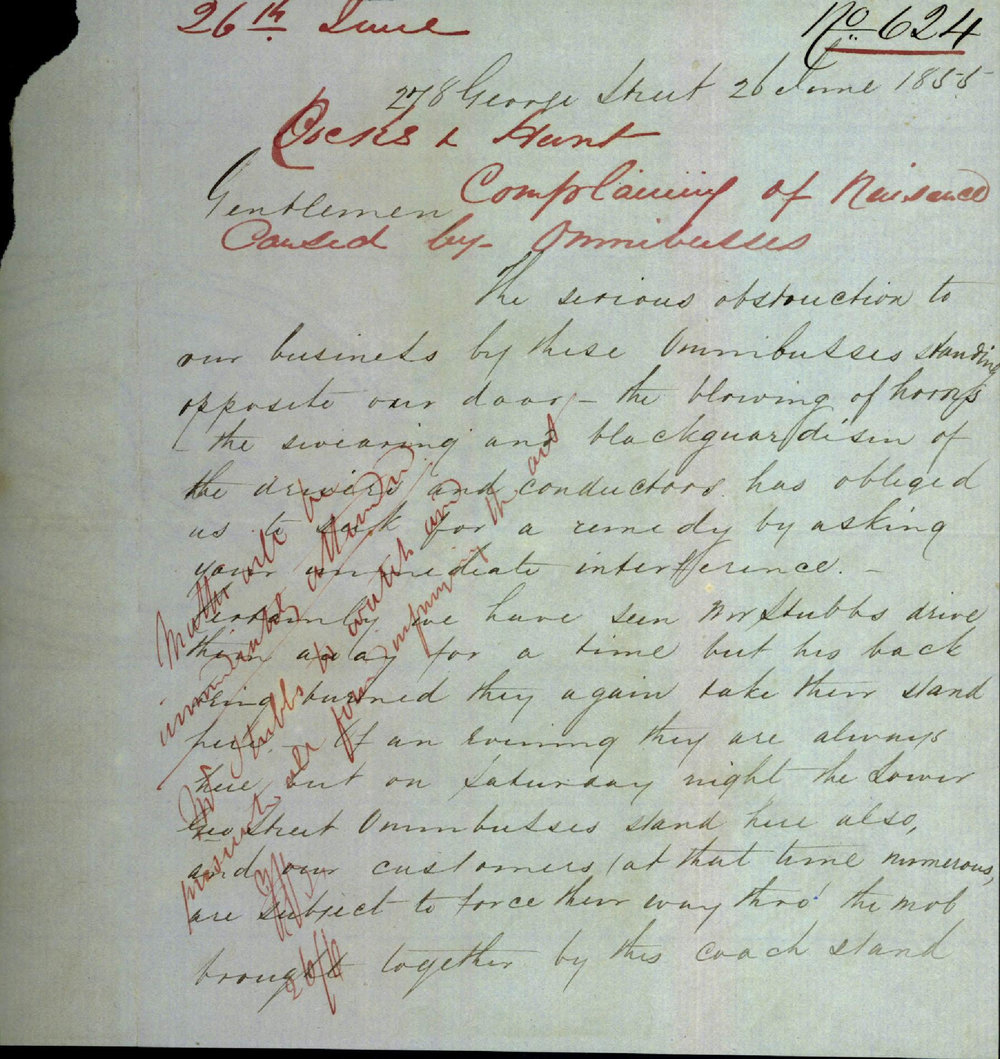 26th June
No. 624
278 George Street 26 June 1855
Cocks & Hunt
Gentlemen
Complaining of Nuisance
Caused by Omnibusses
The serious obstruction to
our business by these Omnibusses standing
opposite our door - the blowing of horns
- the swearing and blackguardism of
the drivers and conductors has obliged
us to seek for a remedy by asking
your immediate interference. -
Certainly we have seen Mr Stubbs drive
them away for a time but his back
being turned they again take their stand
here. - Of an evening they are always
here but on Saturday night the Lower
Geo Street Omnibusses stand here also,
and our customers (at that time numerous,
are subject to force their way thro' the mob
brought together by this coach stand
Matter will be
immediately attended
Mr Stubbs to watch and
prevent all from infringing the act
26/6